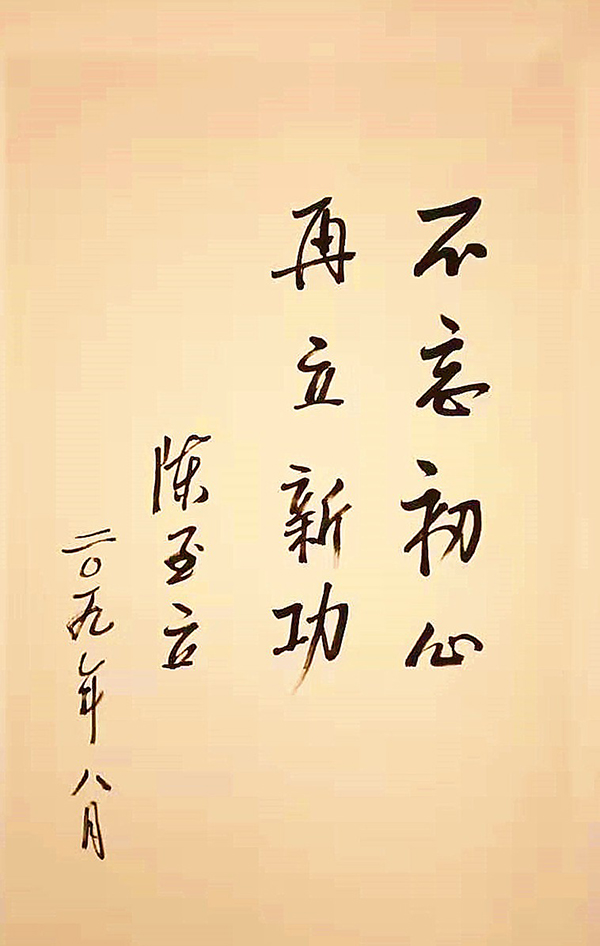 不忘初心
再立新功
陈至立
二〇一九年八月